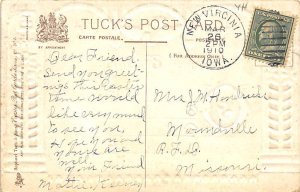 TUCK'S POST CARD
CARTE POSTALE
BY APPOINTMENT
NEW VIRGINIA
MAR
26
2PM
1910
IOWA
Dear Friend,
Send you greet-
ings this Easter
time would
like very much
to see you,
Hope you and
yours are
well.
Your Friend
Mattie Keeney
Mrs J M Hendricks
Moundville
R.F.D.
Missouri.